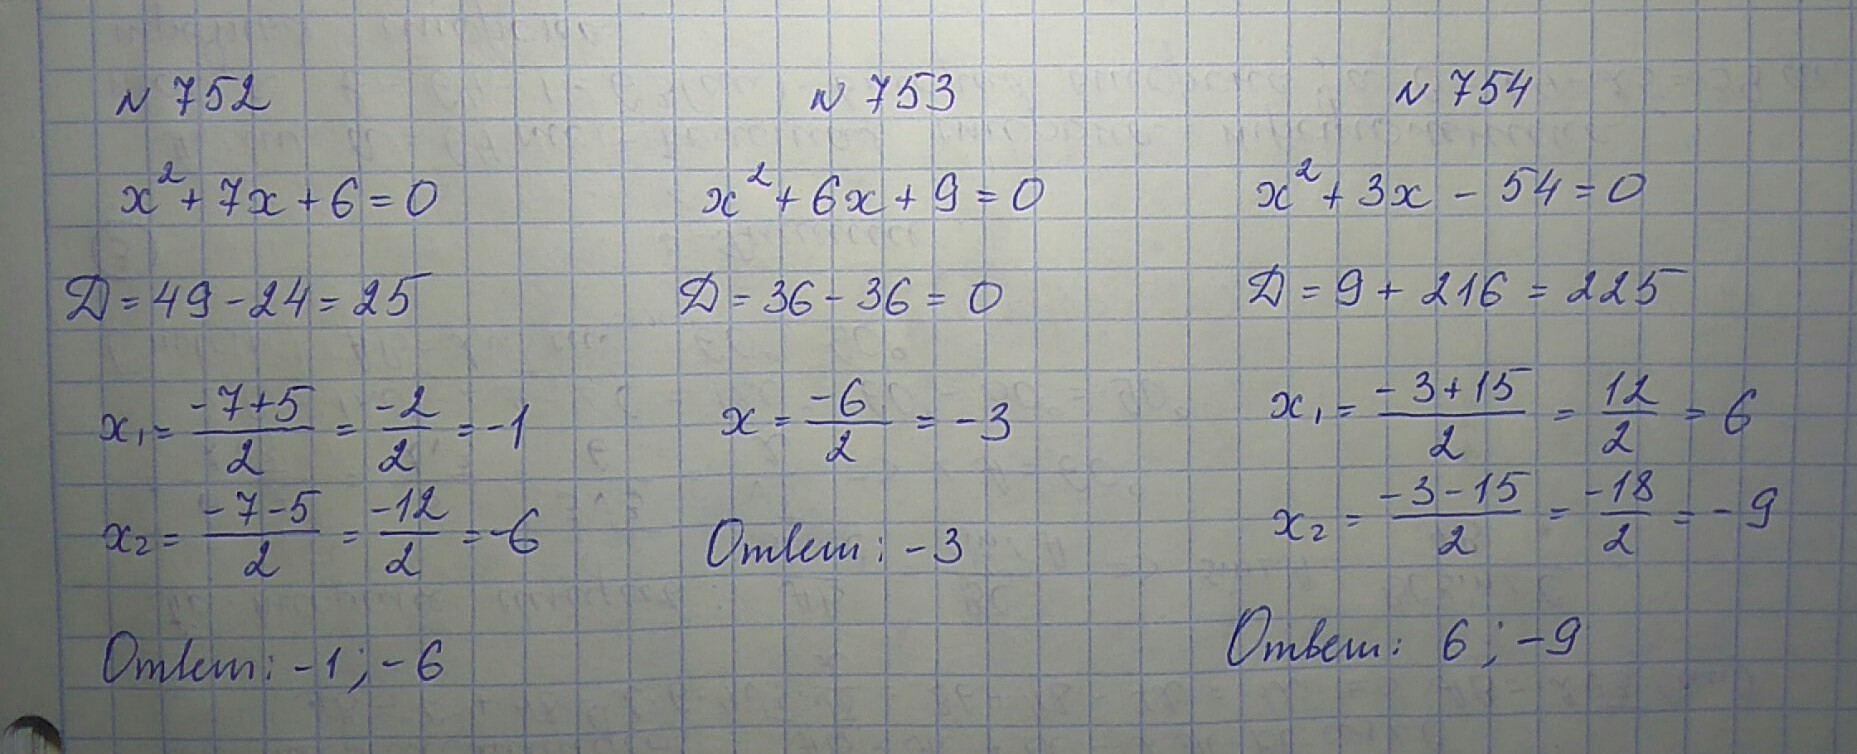 № 752
x² + 7x + 6 = 0
Д = 49 - 24 = 25
x₁ = \frac{-7+5}{2} = \frac{-2}{2} = -1
x₂ = \frac{-7-5}{2} = \frac{-12}{2} = -6
Ответ: -1; -6
№ 753
x² + 6x + 9 = 0
Д = 36 - 36 = 0
x = \frac{-6}{2} = -3
Ответ: -3
№ 754
x² + 3x - 54 = 0
Д = 9 + 216 = 225
x₁ = \frac{-3+15}{2} = \frac{12}{2} = 6
x₂ = \frac{-3-15}{2} = \frac{-18}{2} = -9
Ответ: 6; -9